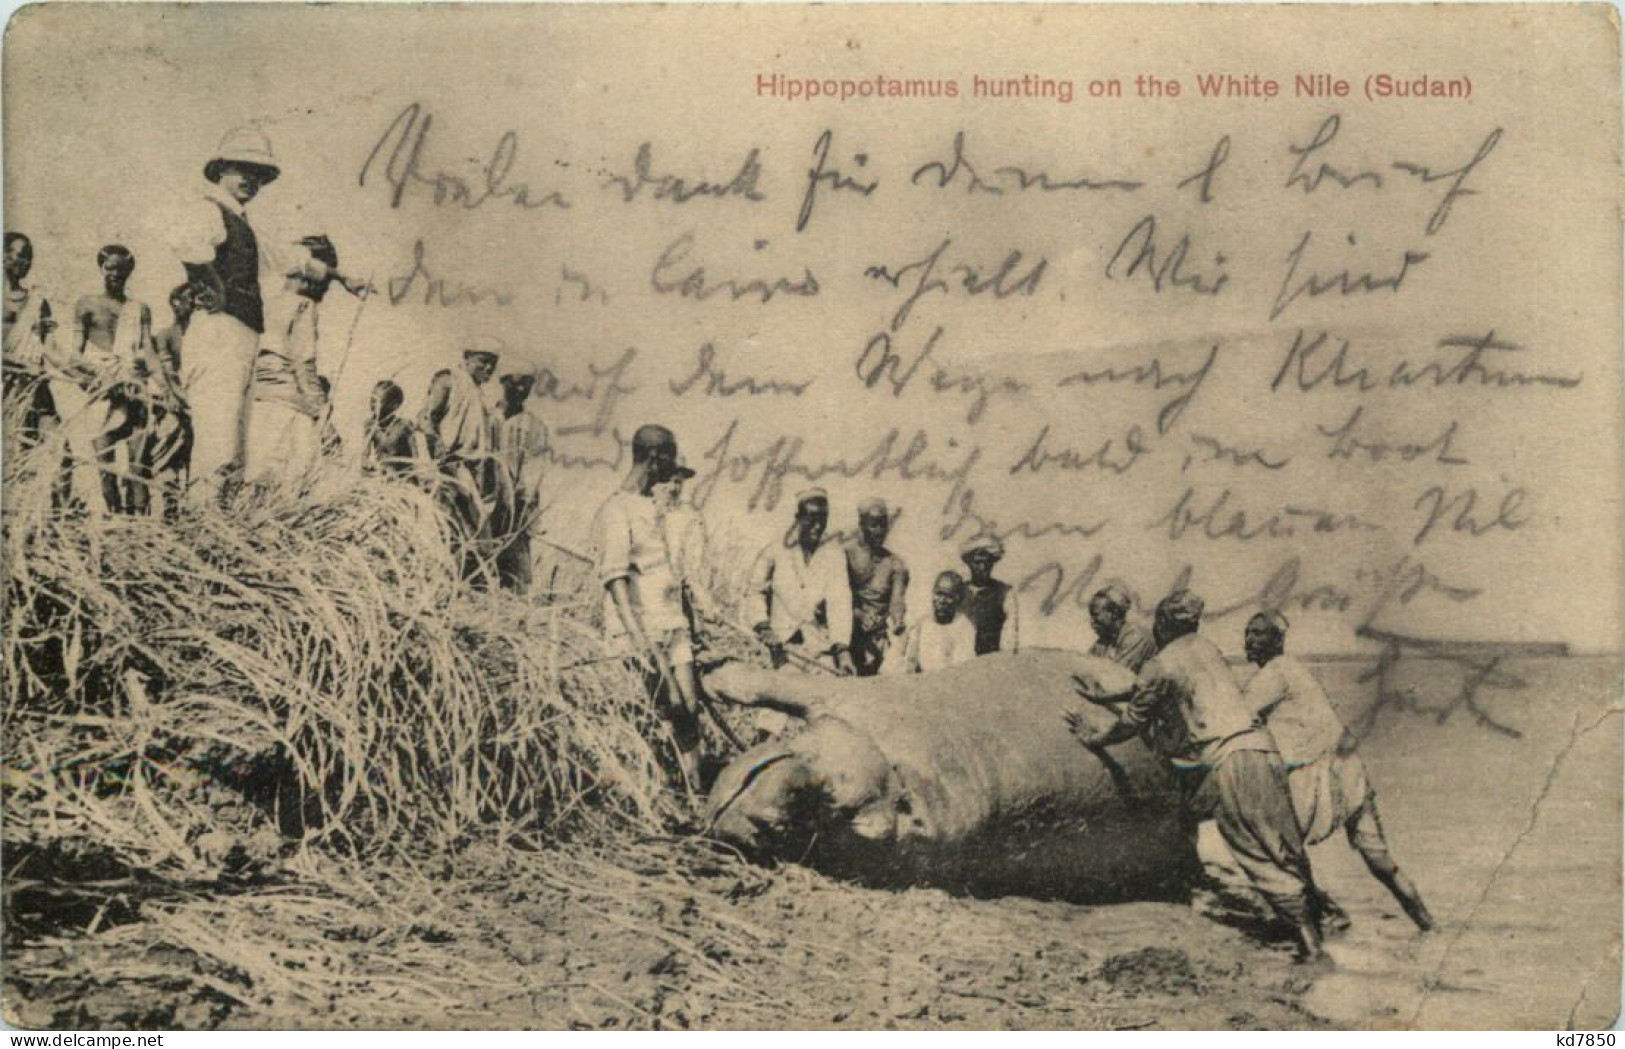 Hippopotamus hunting on the White Nile (Sudan)
Vielen Dank für Deinen l Brief
den in Cairo erhielt. Wir sind
auf dem Wege nach Khartum
und hoffentlich bald im Boot
auf dem blauen Nil.
Grüße
delcampe.net
kd7850